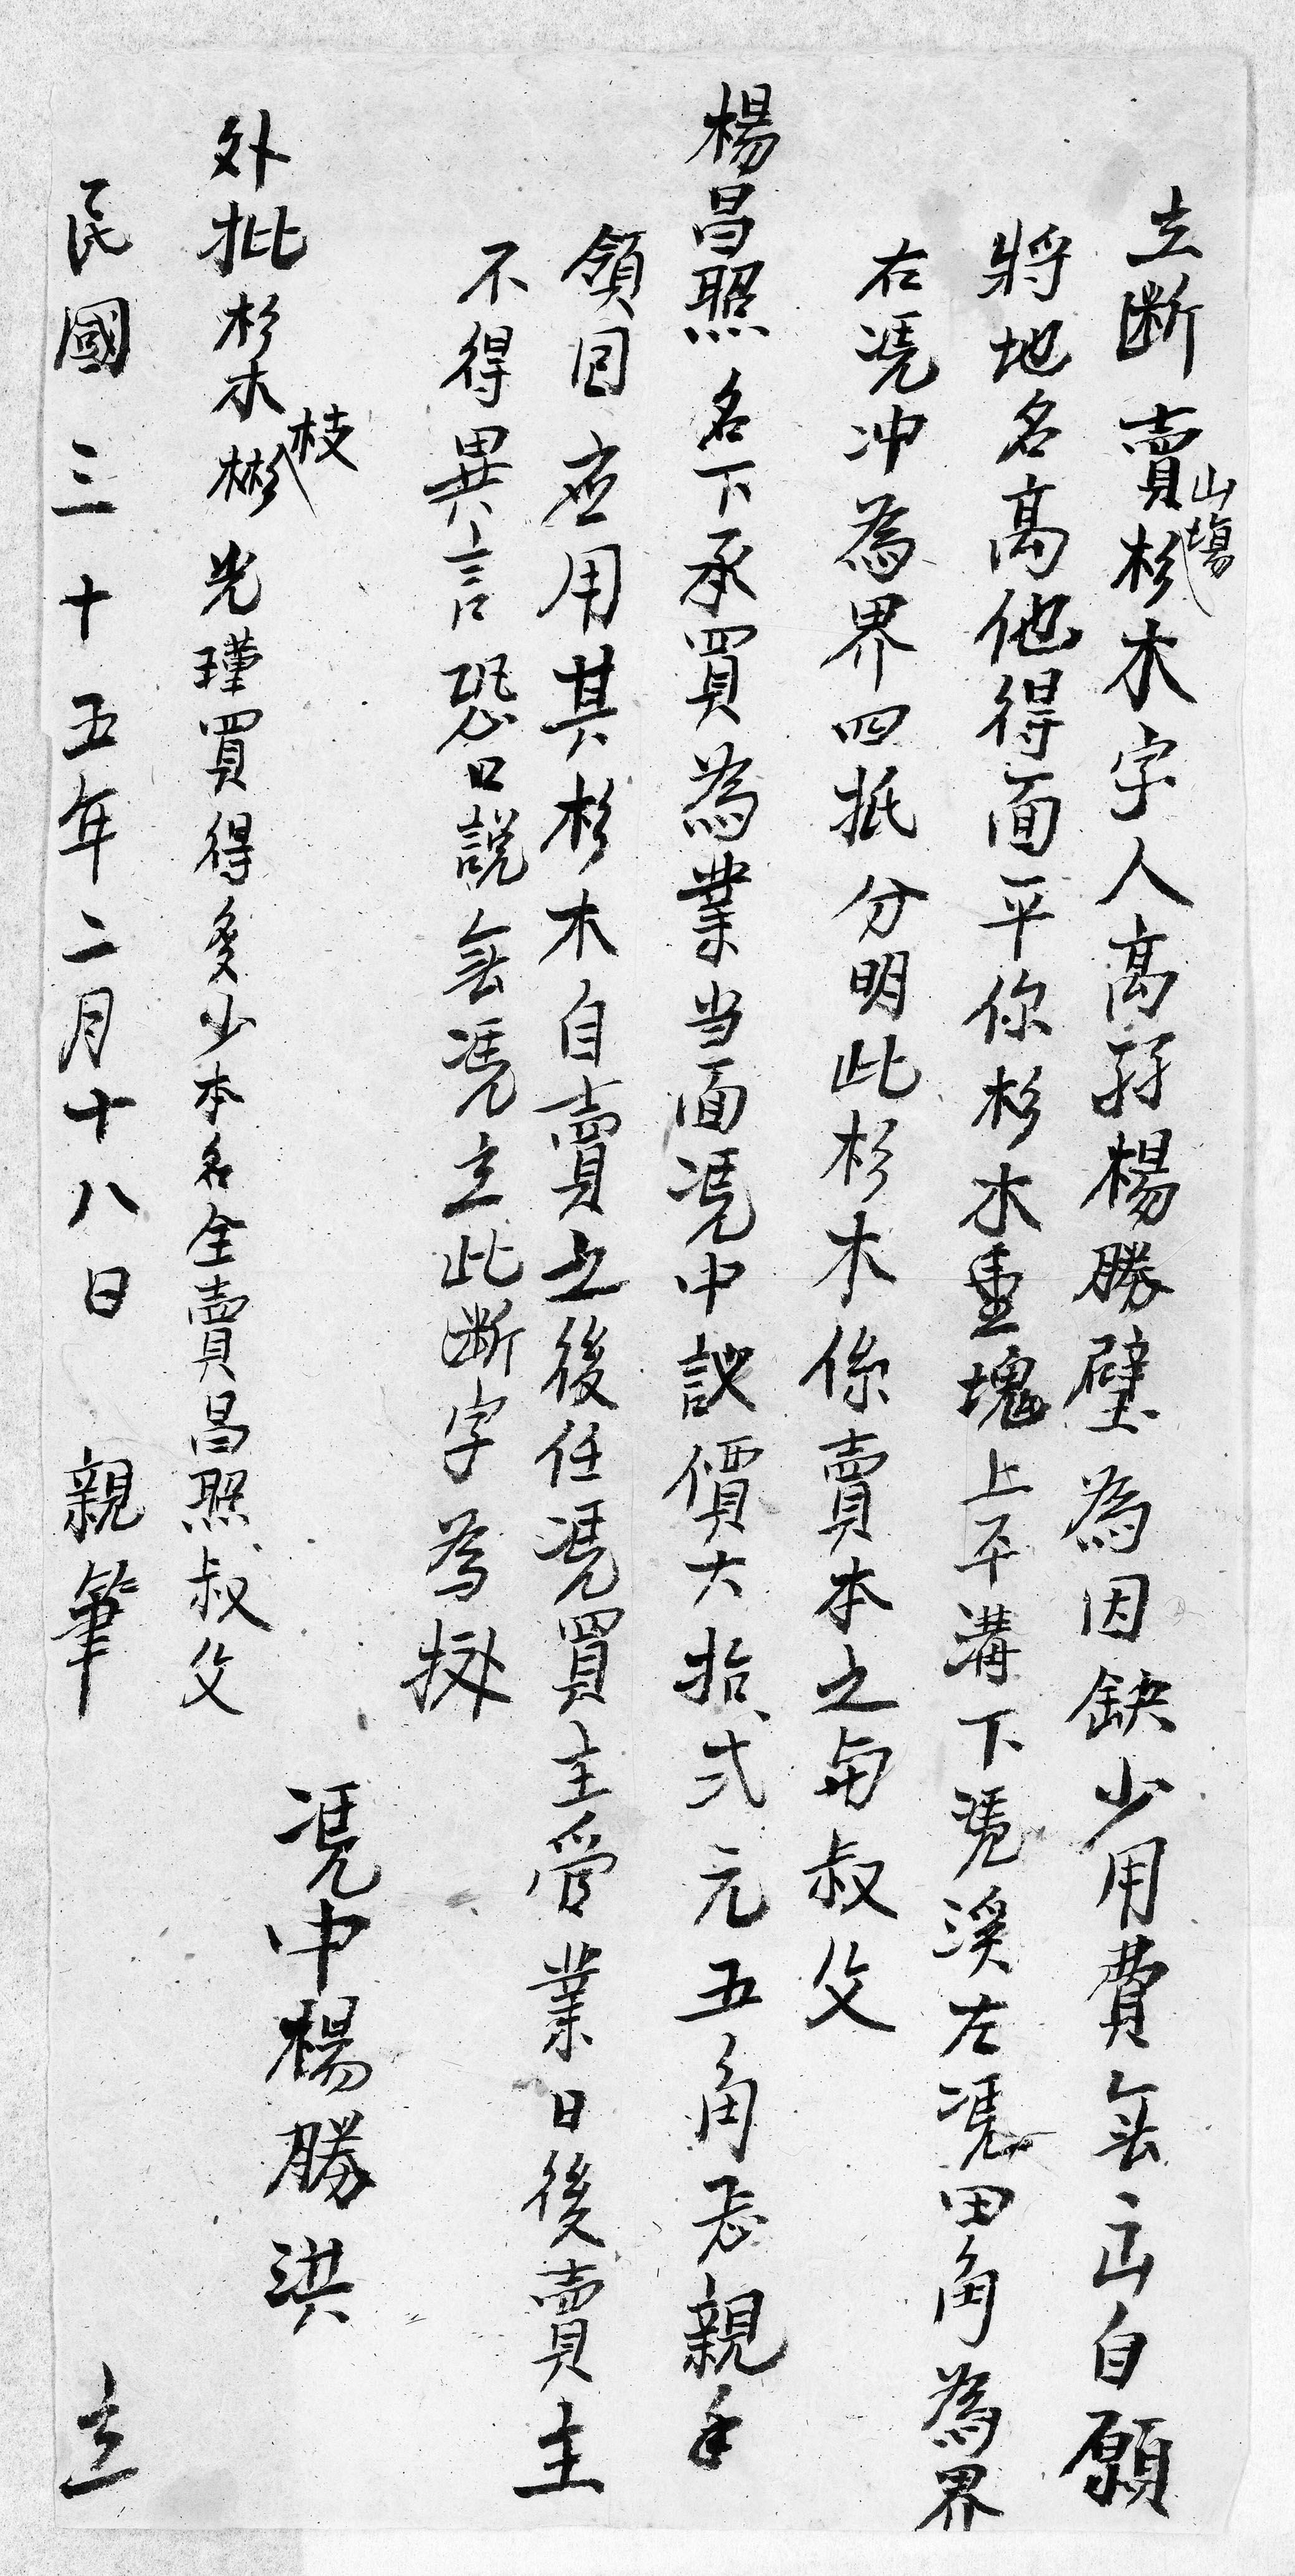 立断賣山塲杉木字人高孖楊勝璧為因缺少用費無出自願
將地名高他得面平你杉木重塊上平溝下凴溪左凴田角為界
右凴冲為界四抵分明此杉木係賣本之叔父
楊昌照名下承買為業当面凴中議價大拾弍元五角恁親手
領囬应用其杉木自賣之後任凴買主管業日後賣主
不得異言恐口説無凴立此断字為據
凴中楊勝洪
外批杉木彬枝光瑾買得多少本名全賣昌照叔父
民國三十五年二月十八日親筆立